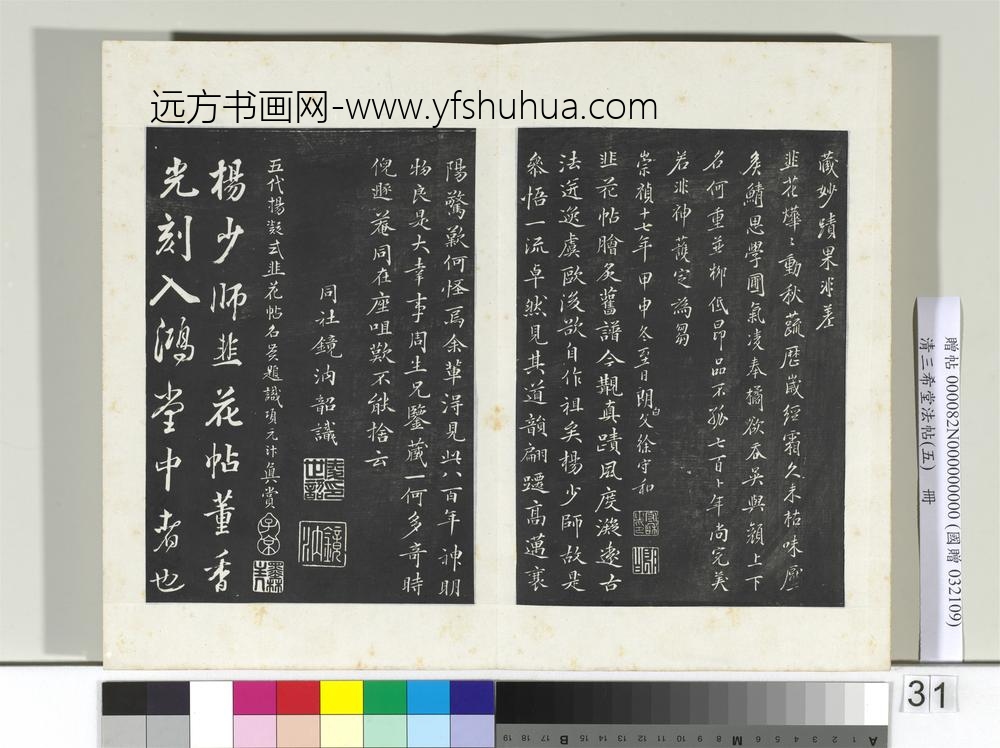 远方书画网-www.yfshuhua.com
藏妙蹟果非差
韭花燁〻動秋蔬歷歲經霜久未枯味壓
矦鯖思學圃氣凌奉橘欲吞吳與顏上下
名何重並柳低昂品不孤七百卜年尚完美
若非神護定為芻
崇禎十七年甲申冬至日閬父徐守和
韭花帖膾炙舊譜今覩真蹟風度凝遠古
法迻逸虞歐後欲自作祖矣楊少師故是
叅悟一流卓然見其道韻翩躚高邁襄
陽驚歎何怪焉余輩淂見此八百年神明
物良是大幸事周生兄鑒藏一何多奇時
倪遯菴同在座咀歎不能捨云
同社鏡汭韶識
五代楊凝式韭花帖名賢題識項元汴真賞
子京
楊少師韭花帖董香
光刻入鴻堂中者也
贈帖 000082N000000000 (國贈 032109)
清三希堂法帖(五) 冊
31